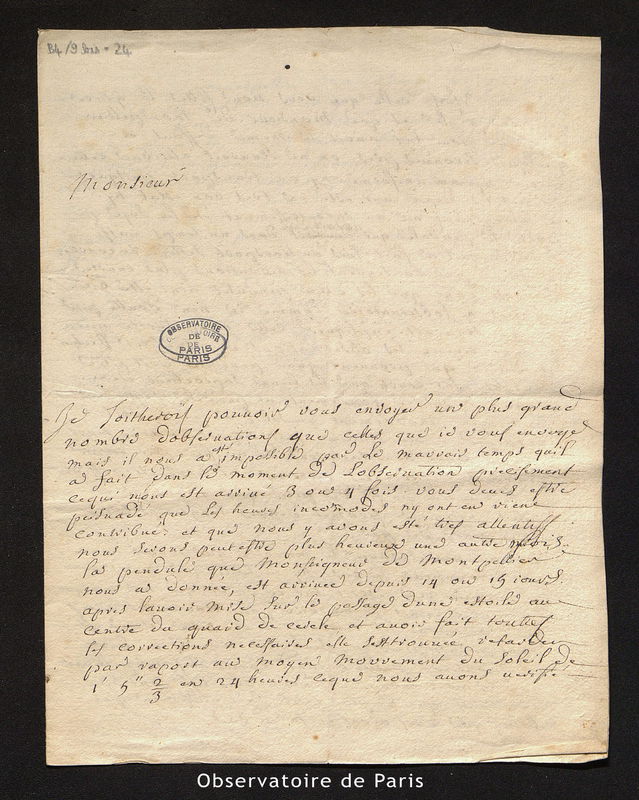 B4/9 bis - 24
Monsieur
OBSERVATOIRE
DE
PARIS
Je souhaitterois pouvoir vous envoyer un plus grand
nombre dobservations que celles que ie vous envoye
mais il nous a esté impossible par le mauvais temps quil
a fait dans le moment de lobservation precisement
cequi nous est arrivé 3 ou 4 fois. vous devés estre
persuadé que les heures incommodes ny ont en rien
contribué et que nous y avons esté tres attentifs
nous serons peut estre plus heureux une autre fois.
la pendule que Monseigneur de Montpellier
nous a donnée, est arrivée depuis 14 ou 15 iours.
apres lavoir mise sur le passage dune estoile au
centre du quard de cercle et avoir fait touttes
les corrections necessaires elle sest trouvée retarder
par raport au moyen mouvement du soleil de
1' 5" 2/3 en 24 heures ceque nous avons verifié
Observatoire de Paris